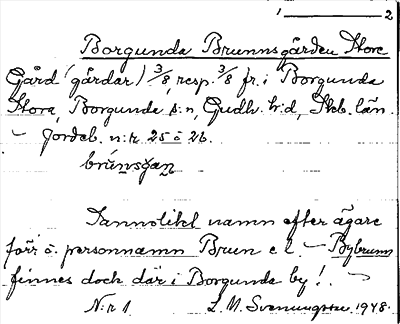 1 2
Borgunda Brunnsgården Store
Gård (gårdar) 3/8, resp. 3/8 fr. i Borgunda
Stora, Borgunda s:n, Gudh. h:d, Skb. län.
— Jordeb. n:r 25 o 26.
brúnsgan
Sannolikt namn efter ägare
förr o. personnamn Brun e. l. — Bybrunn
finnes doch där i Borgunda by! —
N:r 1 L. M. Svenungsson 1948.